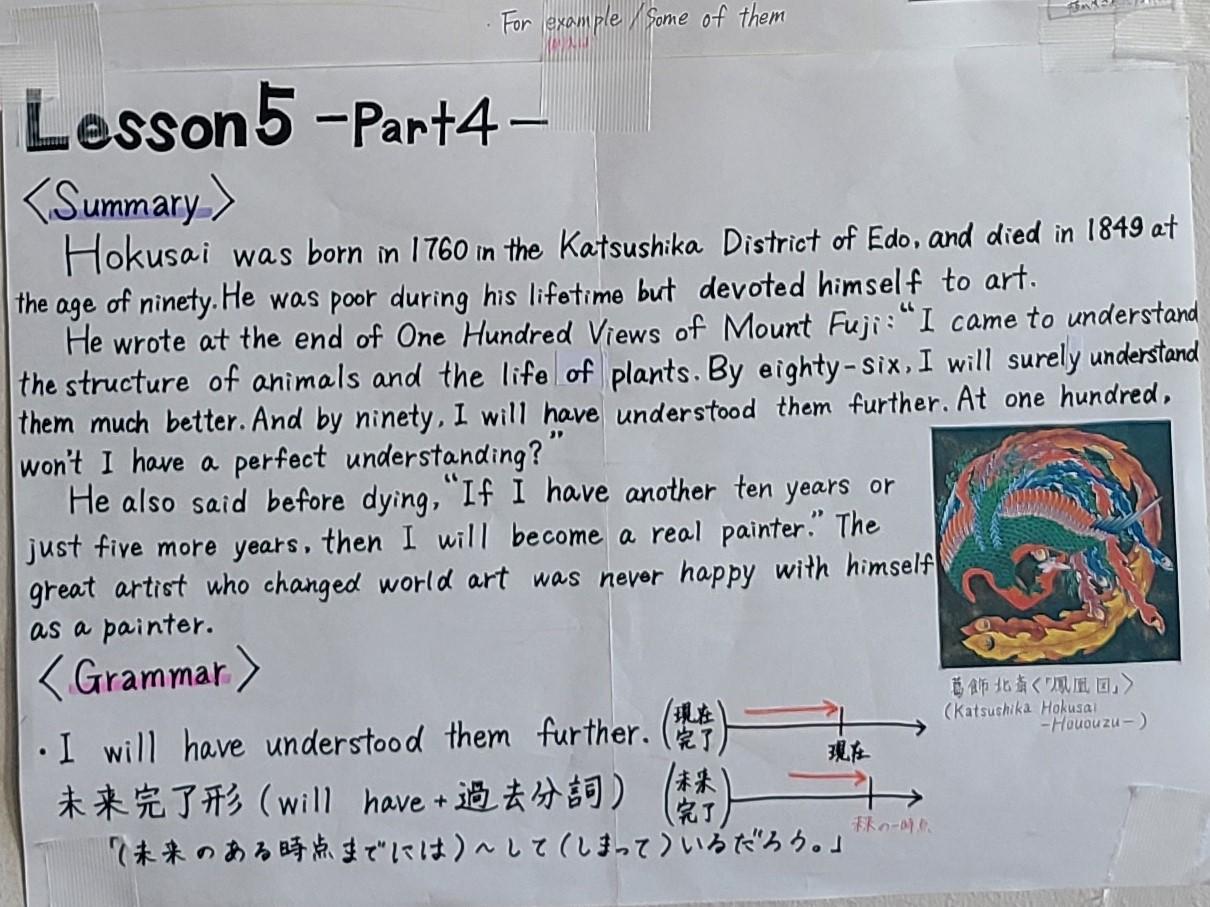 ・For example / Some of them
Lesson5 -Part4-
〈Summary〉
Hokusai was born in 1760 in the Katsushika District of Edo, and died in 1849 at
the age of ninety. He was poor during his lifetime but devoted himself to art.
He wrote at the end of One Hundred Views of Mount Fuji: "I came to understand
the structure of animals and the life of plants. By eighty-six, I will surely understand
them much better. And by ninety, I will have understood them further. At one hundred,
won't I have a perfect understanding?"
He also said before dying, "If I have another ten years or
just five more years, then I will become a real painter." The
great artist who changed world art was never happy with himself
as a painter.
葛飾北斎〈「鳳凰図」〉
(Katsushika Hokusai
-Hououzu-)
〈Grammar〉
・I will have understood them further.
(現在
完了)
現在
未来完了形(will have+過去分詞)
(未来
完了)
未来の一時点
「(未来のある時点までには)~して(しまって)いるだろう。」